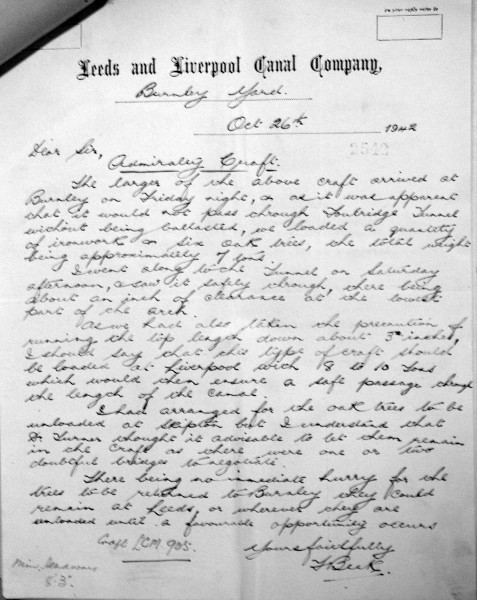 Leeds and Liverpool Canal Company,
Burnley Yard.
Oct 26th 1942
2542
Dear Sir,
Admiralty Craft.
The larger of the above craft arrived at
Burnley on Friday night, & as it was apparent
that it would not pass through Foulridge Tunnel
without being ballasted, we loaded a quantity
of ironwork & six oak trees, the total weight
being approximately 7 tons.
I went along to the Tunnel on Saturday
afternoon, & saw it safely through, there being
about an inch of clearance at the lowest
part of the arch.
As we had also taken the precaution of
running the top length down about 3 inches,
I should say that this type of craft should
be loaded at Liverpool with 8 to 10 Tons
which would then ensure a safe passage through
the length of the Canal.
I had arranged for the oak trees to be
unloaded at Skipton but I understand that
Mr Turner thought it advisable to let them remain
in the craft as there were one or two
doubtful bridges to negotiate.
There being no immediate hurry for the
trees to be returned to Burnley they could
remain at Leeds, or wherever they are
unloaded until a favourable opportunity occurs
Craft LCM. 905.
Yours faithfully
Beck.
Min. Headroom
8' 3"